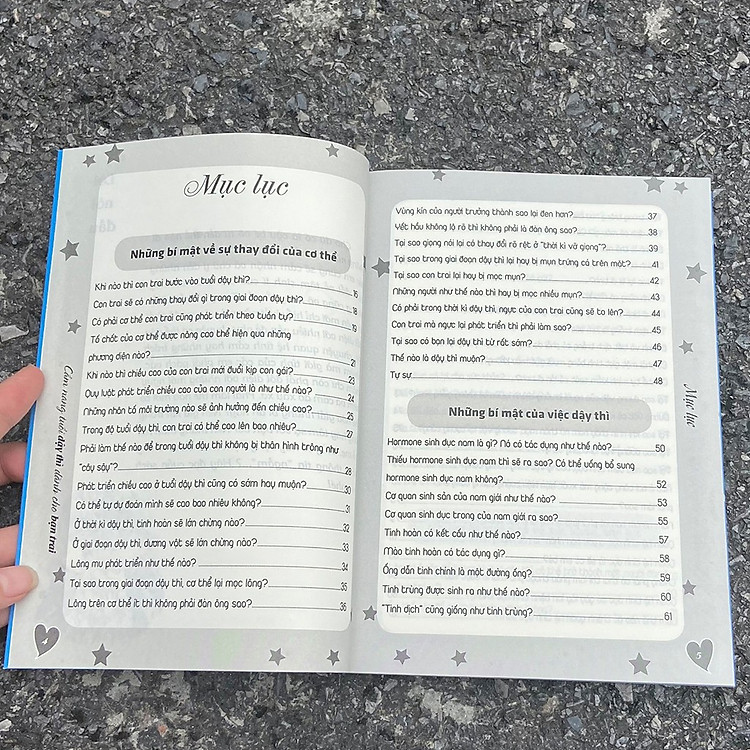 Mục lục
Những bí mật về sự thay đổi của cơ thể
Khi nào thì con trai bước vào tuổi dậy thì? 16
Con trai sẽ có những thay đổi gì trong giai đoạn dậy thì? 18
Có phải cơ thể con trai cũng phát triển theo tuần tự? 19
Tố chất của cơ thể được nâng cao thể hiện qua những
phương diện nào? 21
Khi nào thì chiều cao của con trai mới đuổi kịp con gái? 23
Quy luật phát triển chiều cao của con người là như thế nào? 24
Những nhân tố môi trường nào sẽ ảnh hưởng đến chiều cao? 25
Trong độ tuổi dậy thì, con trai có thể cao lên bao nhiêu? 27
Phải làm thế nào để trong tuổi dậy thì không bị thân hình trông như
"cây sậy"? 28
Phát triển chiều cao ở tuổi dậy thì cũng có sớm hay muộn? 30
Có thể tự dự đoán mình sẽ cao bao nhiêu không? 31
Ở thời kì dậy thì, tinh hoàn sẽ lớn chừng nào? 32
Ở giai đoạn dậy thì, dương vật sẽ lớn chừng nào? 33
Lông mu phát triển như thế nào? 34
Tại sao trong giai đoạn dậy thì, cơ thể lại mọc lông? 35
Lông trên cơ thể ít thì không phải đàn ông sao? 36
Cẩm nang tuổi dậy thì dành cho bạn trai
4
Vùng kín của người trưởng thành sao lại đen hơn? 37
Yết hầu không lộ rõ thì không phải là đàn ông sao? 38
Tại sao giọng nói lại có thay đổi rõ rệt ở "thời kì vỡ giọng"? 39
Tại sao trong giai đoạn dậy thì lại hay bị mụn trứng cá trên mặt? 41
Tại sao con trai lại hay bị mọc mụn? 42
Những người như thế nào thì hay bị mọc nhiều mụn? 43
Có phải trong thời kì dậy thì, ngực của con trai cũng sẽ to lên? 44
Con trai mà ngực lại phát triển thì phải làm sao? 45
Tại sao có bạn lại dậy thì từ rất sớm? 46
Thế nào là dậy thì muộn? 47
Tự sự 48
Những bí mật của việc dậy thì
Hormone sinh dục nam là gì? Nó có tác dụng như thế nào? 50
Thiếu hormone sinh dục nam thì sẽ ra sao? Có thể uống bổ sung
hormone sinh dục nam không? 52
Cơ quan sinh sản của nam giới như thế nào? 53
Cơ quan sinh dục trong của nam giới ra sao? 55
Tinh hoàn có kết cấu như thế nào? 57
Mào tinh hoàn có tác dụng gì? 58
Ống dẫn tinh chính là một đường ống? 59
Tinh trùng được sinh ra như thế nào? 60
"Tinh dịch" cũng giống như tinh trùng? 61
Mục lục
5